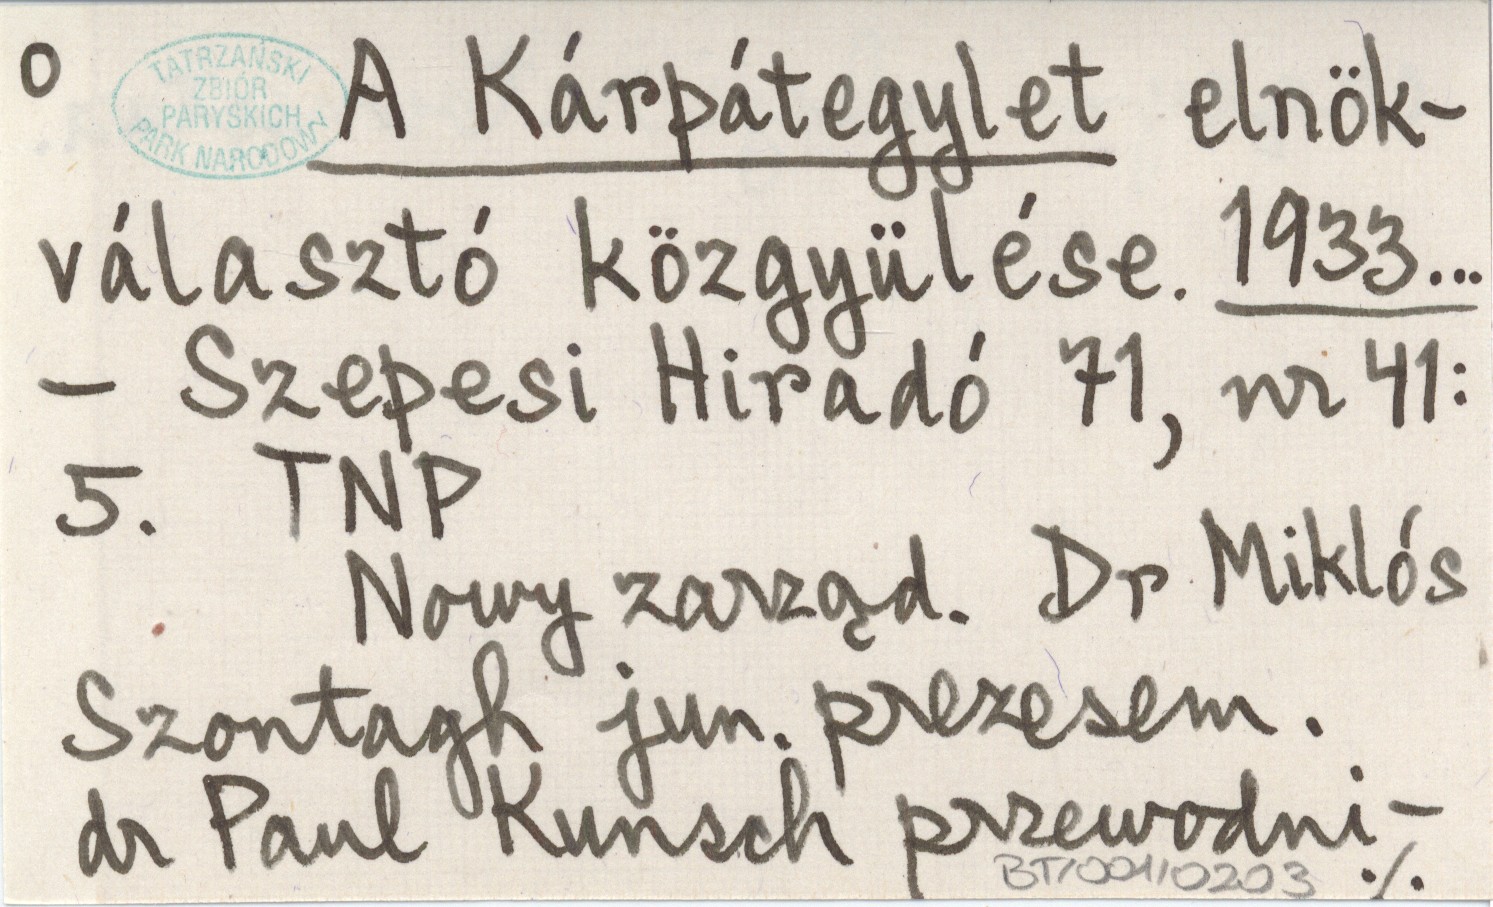 o A Kárpátegylet elnök-
TATRZAŃSKI
ZBIÓR
PARYSKICH
PARK NARODOWY
választó közgyülése. 1933...
– Szepesi Hiradó 71, nr 41:
5. TNP
Nowy zarząd. Dr Miklós
Szontagh jun. prezesem.
dr Paul Kunsch przewodni-
BT/001/0203 ./.